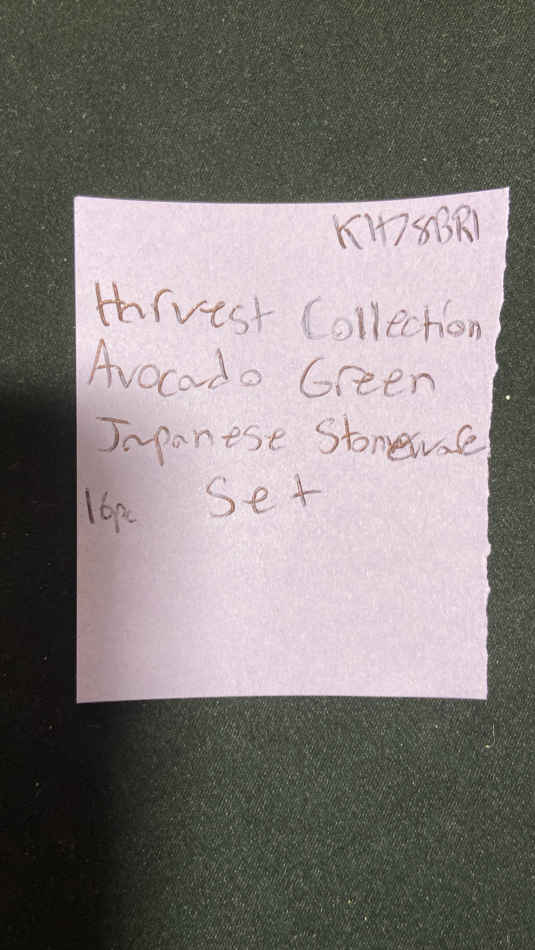 KH78BR1
Harvest Collection
Avocado Green
Japanese Stoneware
16pc Set